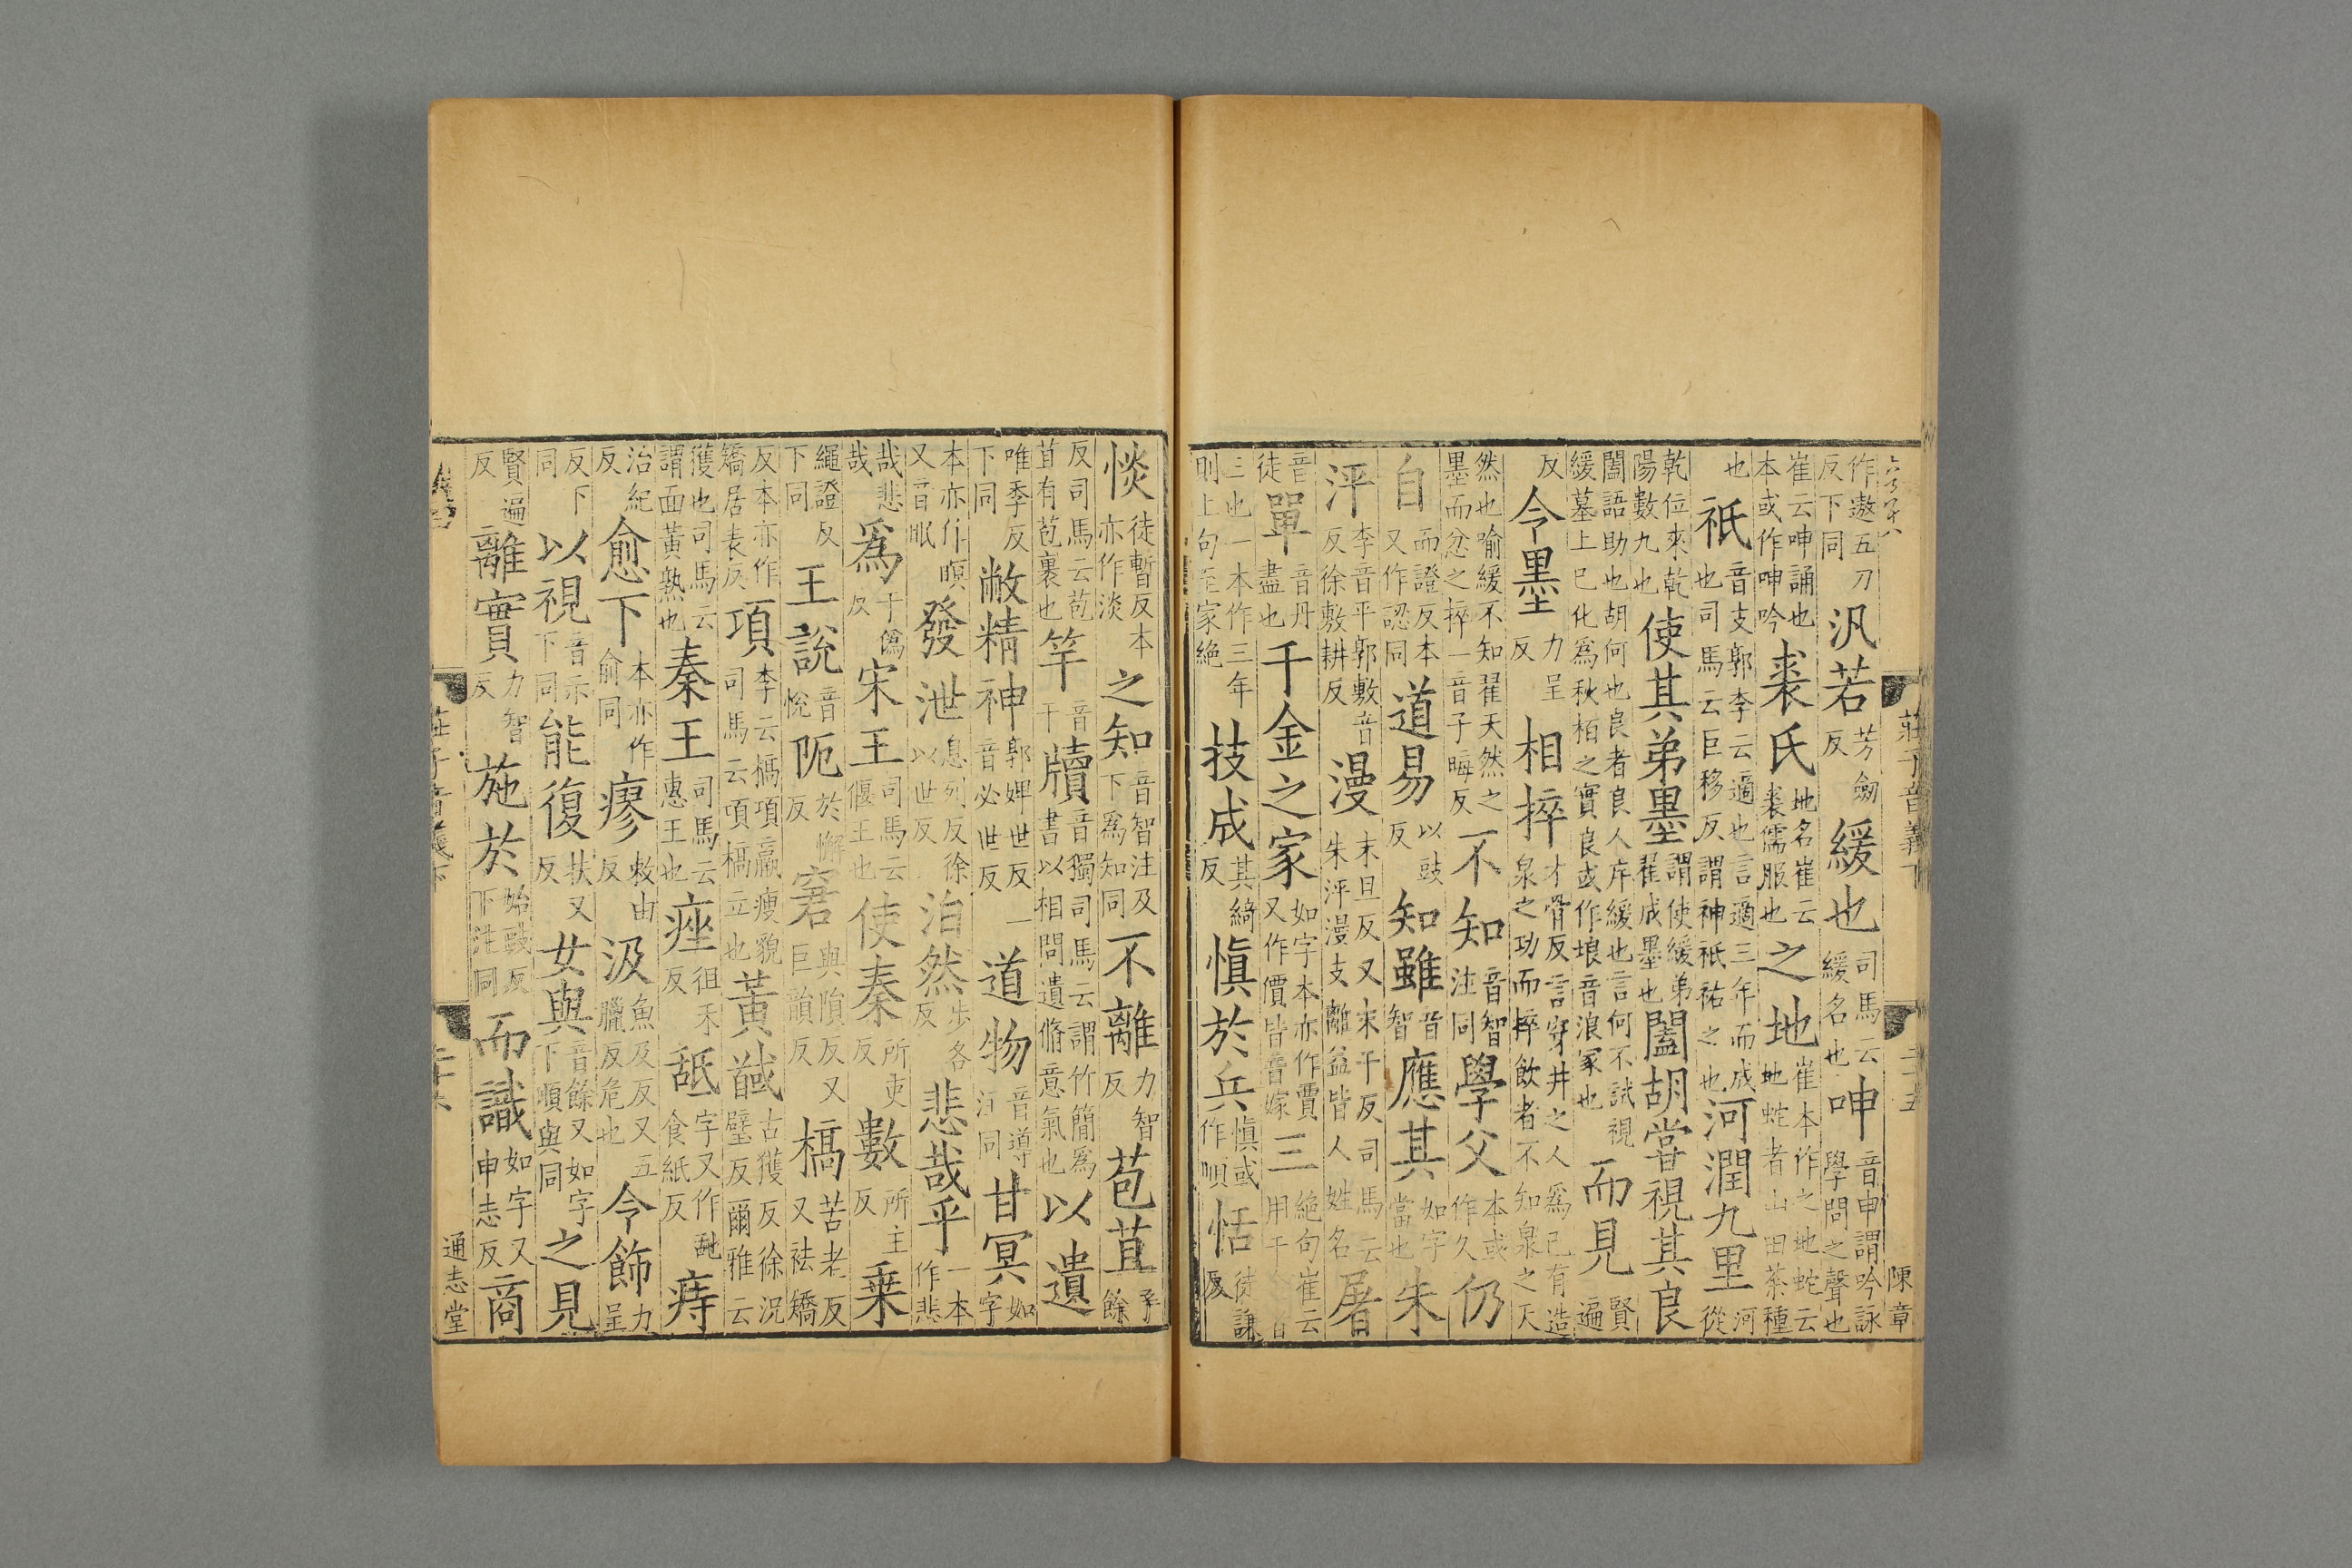 陳章
莊子音義下 二十五
作遨五刀反下同汎若芳劒反緩也司馬云緩名也呻音申謂吟詠學問之聲也
崔云呻誦也本或作呻吟裘氏地名崔云裘儒服也之地崔本作之地蛇云地蛇者山田茶種
也祇音支郭李云適也言適三年而成也司馬云巨移反謂神祇祐之也河潤九里河從
乾位來乾陽數九也使其弟墨謂使緩弟翟成墨也闔胡嘗視其良
闔語助也胡何也良者良人斥緩也言何不試視緩墓上已化爲秋栢之實良或作埌音浪冢也而見賢遍
反令墨力呈反相捽才骨反言穿井之人爲已有造泉之功而捽飲者不知泉之天
然也喻緩不知翟天然之墨而忿之捽一音子晦反不知音智注同學父本或作久仍
自而證反本又作認同道易以豉反知雖音智應其如字當也朱
泙李音平郭敷音反徐敷耕反漫末旦反又末干反司馬云朱泙漫支離益皆人姓名屠
音徒單音丹盡也千金之家如字本亦作賈又作價皆音嫁三絶句崔云用千
三也一本作三年則上句至家絶技成其綺反愼於兵愼或作順恬徒謙反
惔徒暫反本亦作淡之知音智注及下爲知同不離力智反苞苴子餘
反司馬云苞苴有苞裹也竿音干牘音獨司馬云謂竹簡爲書以相問遺脩意氣也以遺
唯季反下同敝精神郭婢世反一音必世反道物音導注同甘冥如字
本亦作瞑又音眠發泄息列反徐以世反泊然步各反悲哉乎一本作悲
哉悲哉爲于僞反宋王司馬云偃王也使秦所吏反數所主反乗
繩證反下同王說音悅阨於懈反窘與隕反又巨韻反槁苦老反又袪矯
反本亦作矯居表反項李云槁項羸瘦貌司馬云項槁立也黃馘古獲反徐況璧反爾雅云
獲也司馬云謂面黃熟也秦王司馬云惠王也痤徂禾反舐字又作䑛食紙反痔
治紀反愈下本亦作俞同瘳敕由反汲魚及反又五臘反危也令飾力呈
反下同以視音示下同能復扶又反女與音餘又如字下頤與同之見
賢遍反離實力智反施於始豉反下注同而識如字又申志反商
莊子音義下 二十六
通志堂